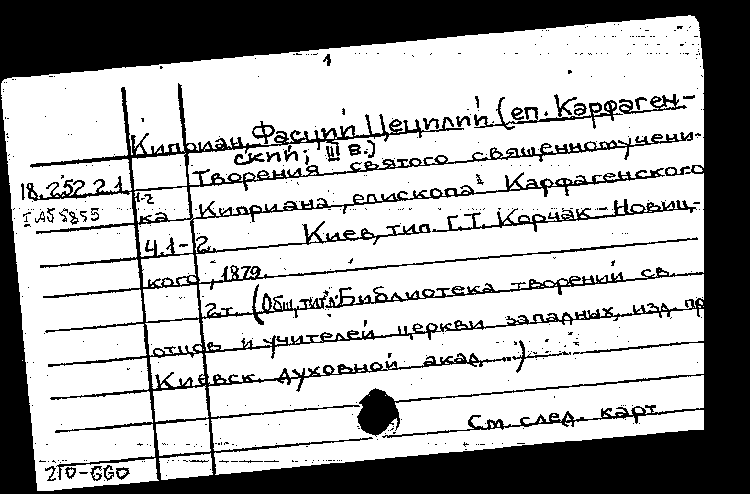 1
Киприан, Фасций Цецилий (еп. Карфаген-
ский; III в.)
18.252.2.1 Творения святого священномучени-
I Аб 5855 1-2 ка Киприана, епископа Карфагенского
Ч.1-2. Киев, тип. Г.Т. Корчак-Новиц-
кого, 1879.
2т. (Общ. тит. л: Библиотека творений св.
отцов и учителей церкви западных, изд. пр
Киевск. духовной акад. ...)
См. след. карт
210-660